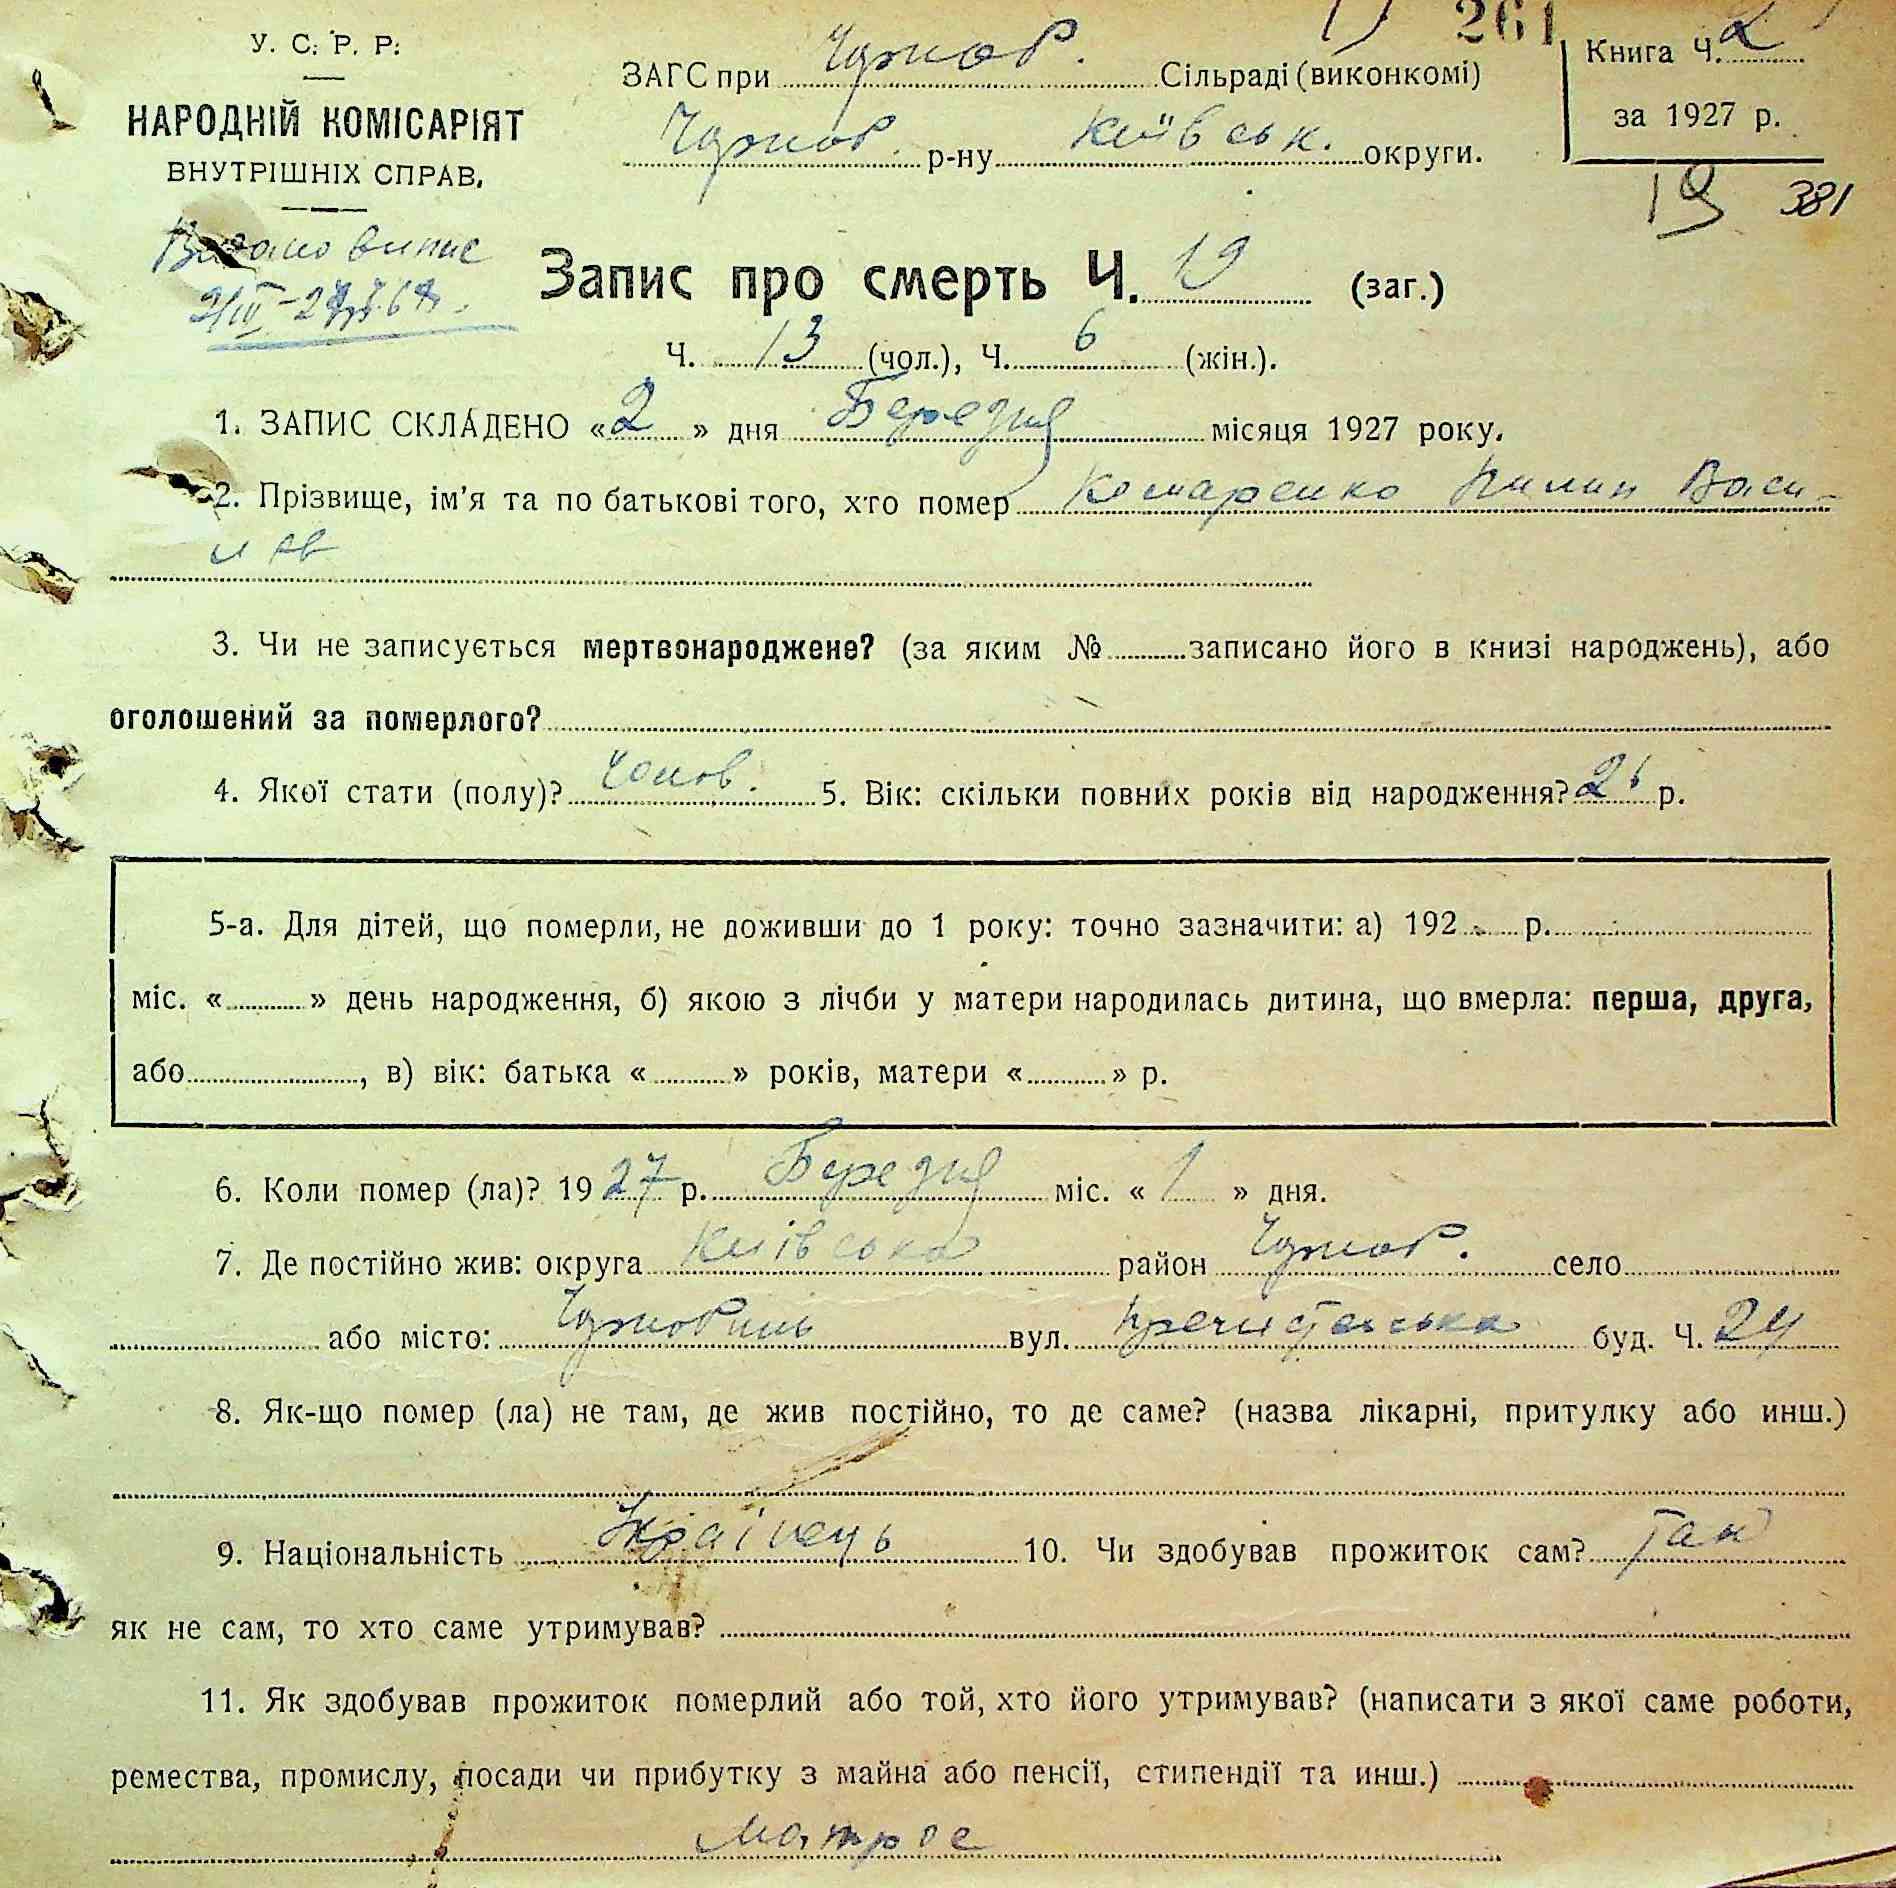 261
У. С. Р. Р.
НАРОДНІЙ КОМІСАРІЯТ
ВНУТРІШНІХ СПРАВ.
ЗАГС при Чорноб. Сільраді (виконкомі)
Чорноб. р-ну Київськ. округи.
Книга Ч. 2
за 1927 р.
19 381
Видано випис
Запис про смерть Ч. 19 (заг.)
Ч. 13 (чол.), Ч. 6 (жін.).
1. ЗАПИС СКЛАДЕНО «2» дня Березня місяця 1927 року.
2. Прізвище, ім'я та по батькові того, хто помер Комаренко Пилип Васи-
лів
3. Чи не записується мертвонароджене? (за яким № записано його в книзі народжень), або
оголошений за померлого?
4. Якої стати (полу)? Чолов. 5. Вік: скільки повних років від народження? 26 р.
5-а. Для дітей, що померли, не доживши до 1 року: точно зазначити: а) 192 р.
міс. « » день народження, б) якою з лічби у матери народилась дитина, що вмерла: перша, друга,
або , в) вік: батька « » років, матери « » р.
6. Коли помер (ла)? 1927 р. Березня міс. «1» дня.
7. Де постійно жив: округа Київська район Чорноб. село
або місто: Чорнобиль вул. Пречистенська буд. Ч. 24
8. Як-що помер (ла) не там, де жив постійно, то де саме? (назва лікарні, притулку або инш.)
9. Національність Українець 10. Чи здобував прожиток сам? Так
як не сам, то хто саме утримував?
11. Як здобував прожиток померлий або той, хто його утримував? (написати з якої саме роботи,
ремества, промислу, посади чи прибутку з майна або пенсії, стипендії та инш.)
Матрос